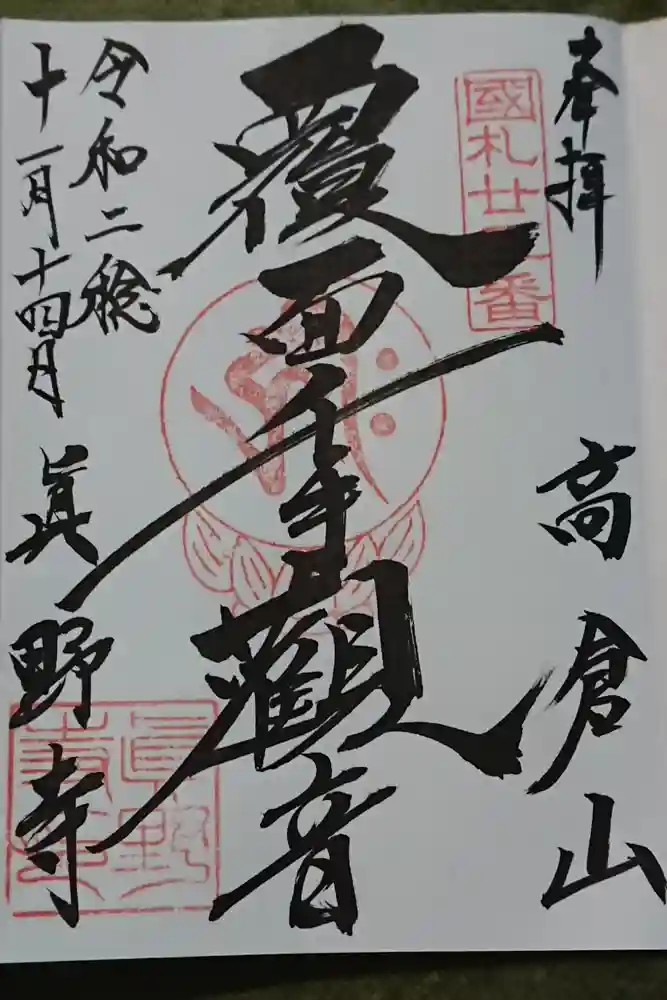 奉拝
高倉山
國札廿五番
覆面千手觀音
令和二稔
十一月十四日
眞野寺